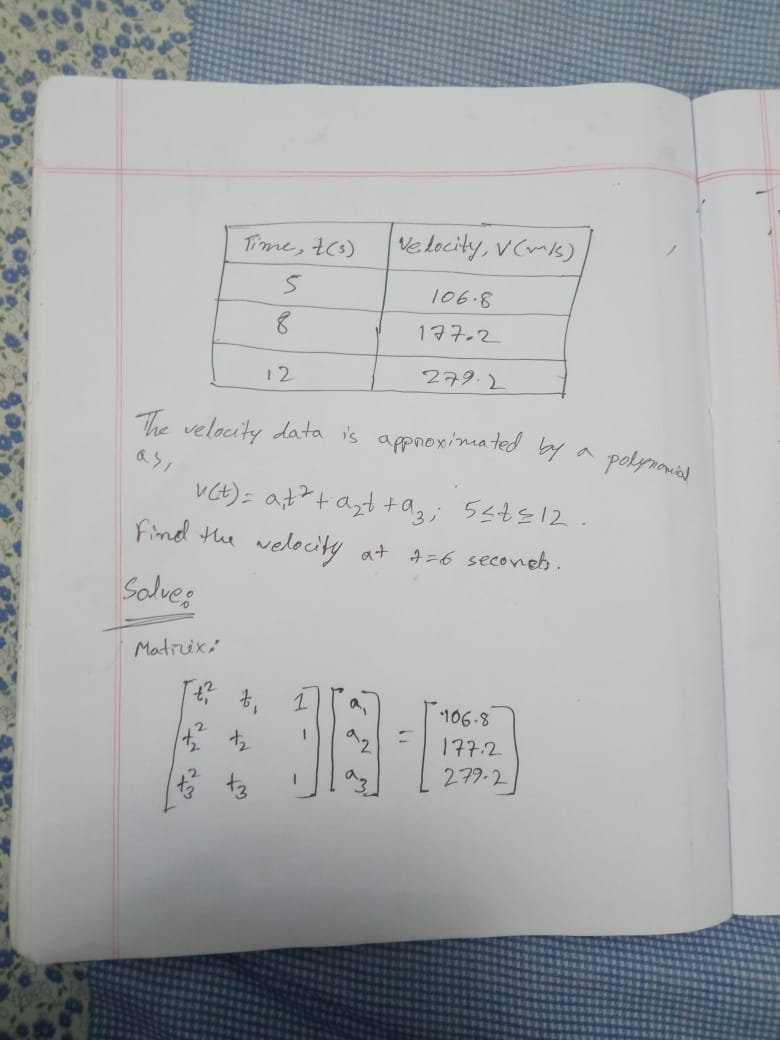 Time, t(s) Velocity, V(m/s)
5 106.8
8 177.2
12 279.2
The velocity data is approximated by a polynomial
as,
v(t) = a₁t² + a₂t + a₃; 5≤t≤12.
Find the velocity at t=6 seconds.
Solve:
Matrix:
[t₁² t₁ 1] [a₁] [106.8]
[t₂² t₂ 1] [a₂] = [177.2]
[t₃² t₃ 1] [a₃] [279.2]